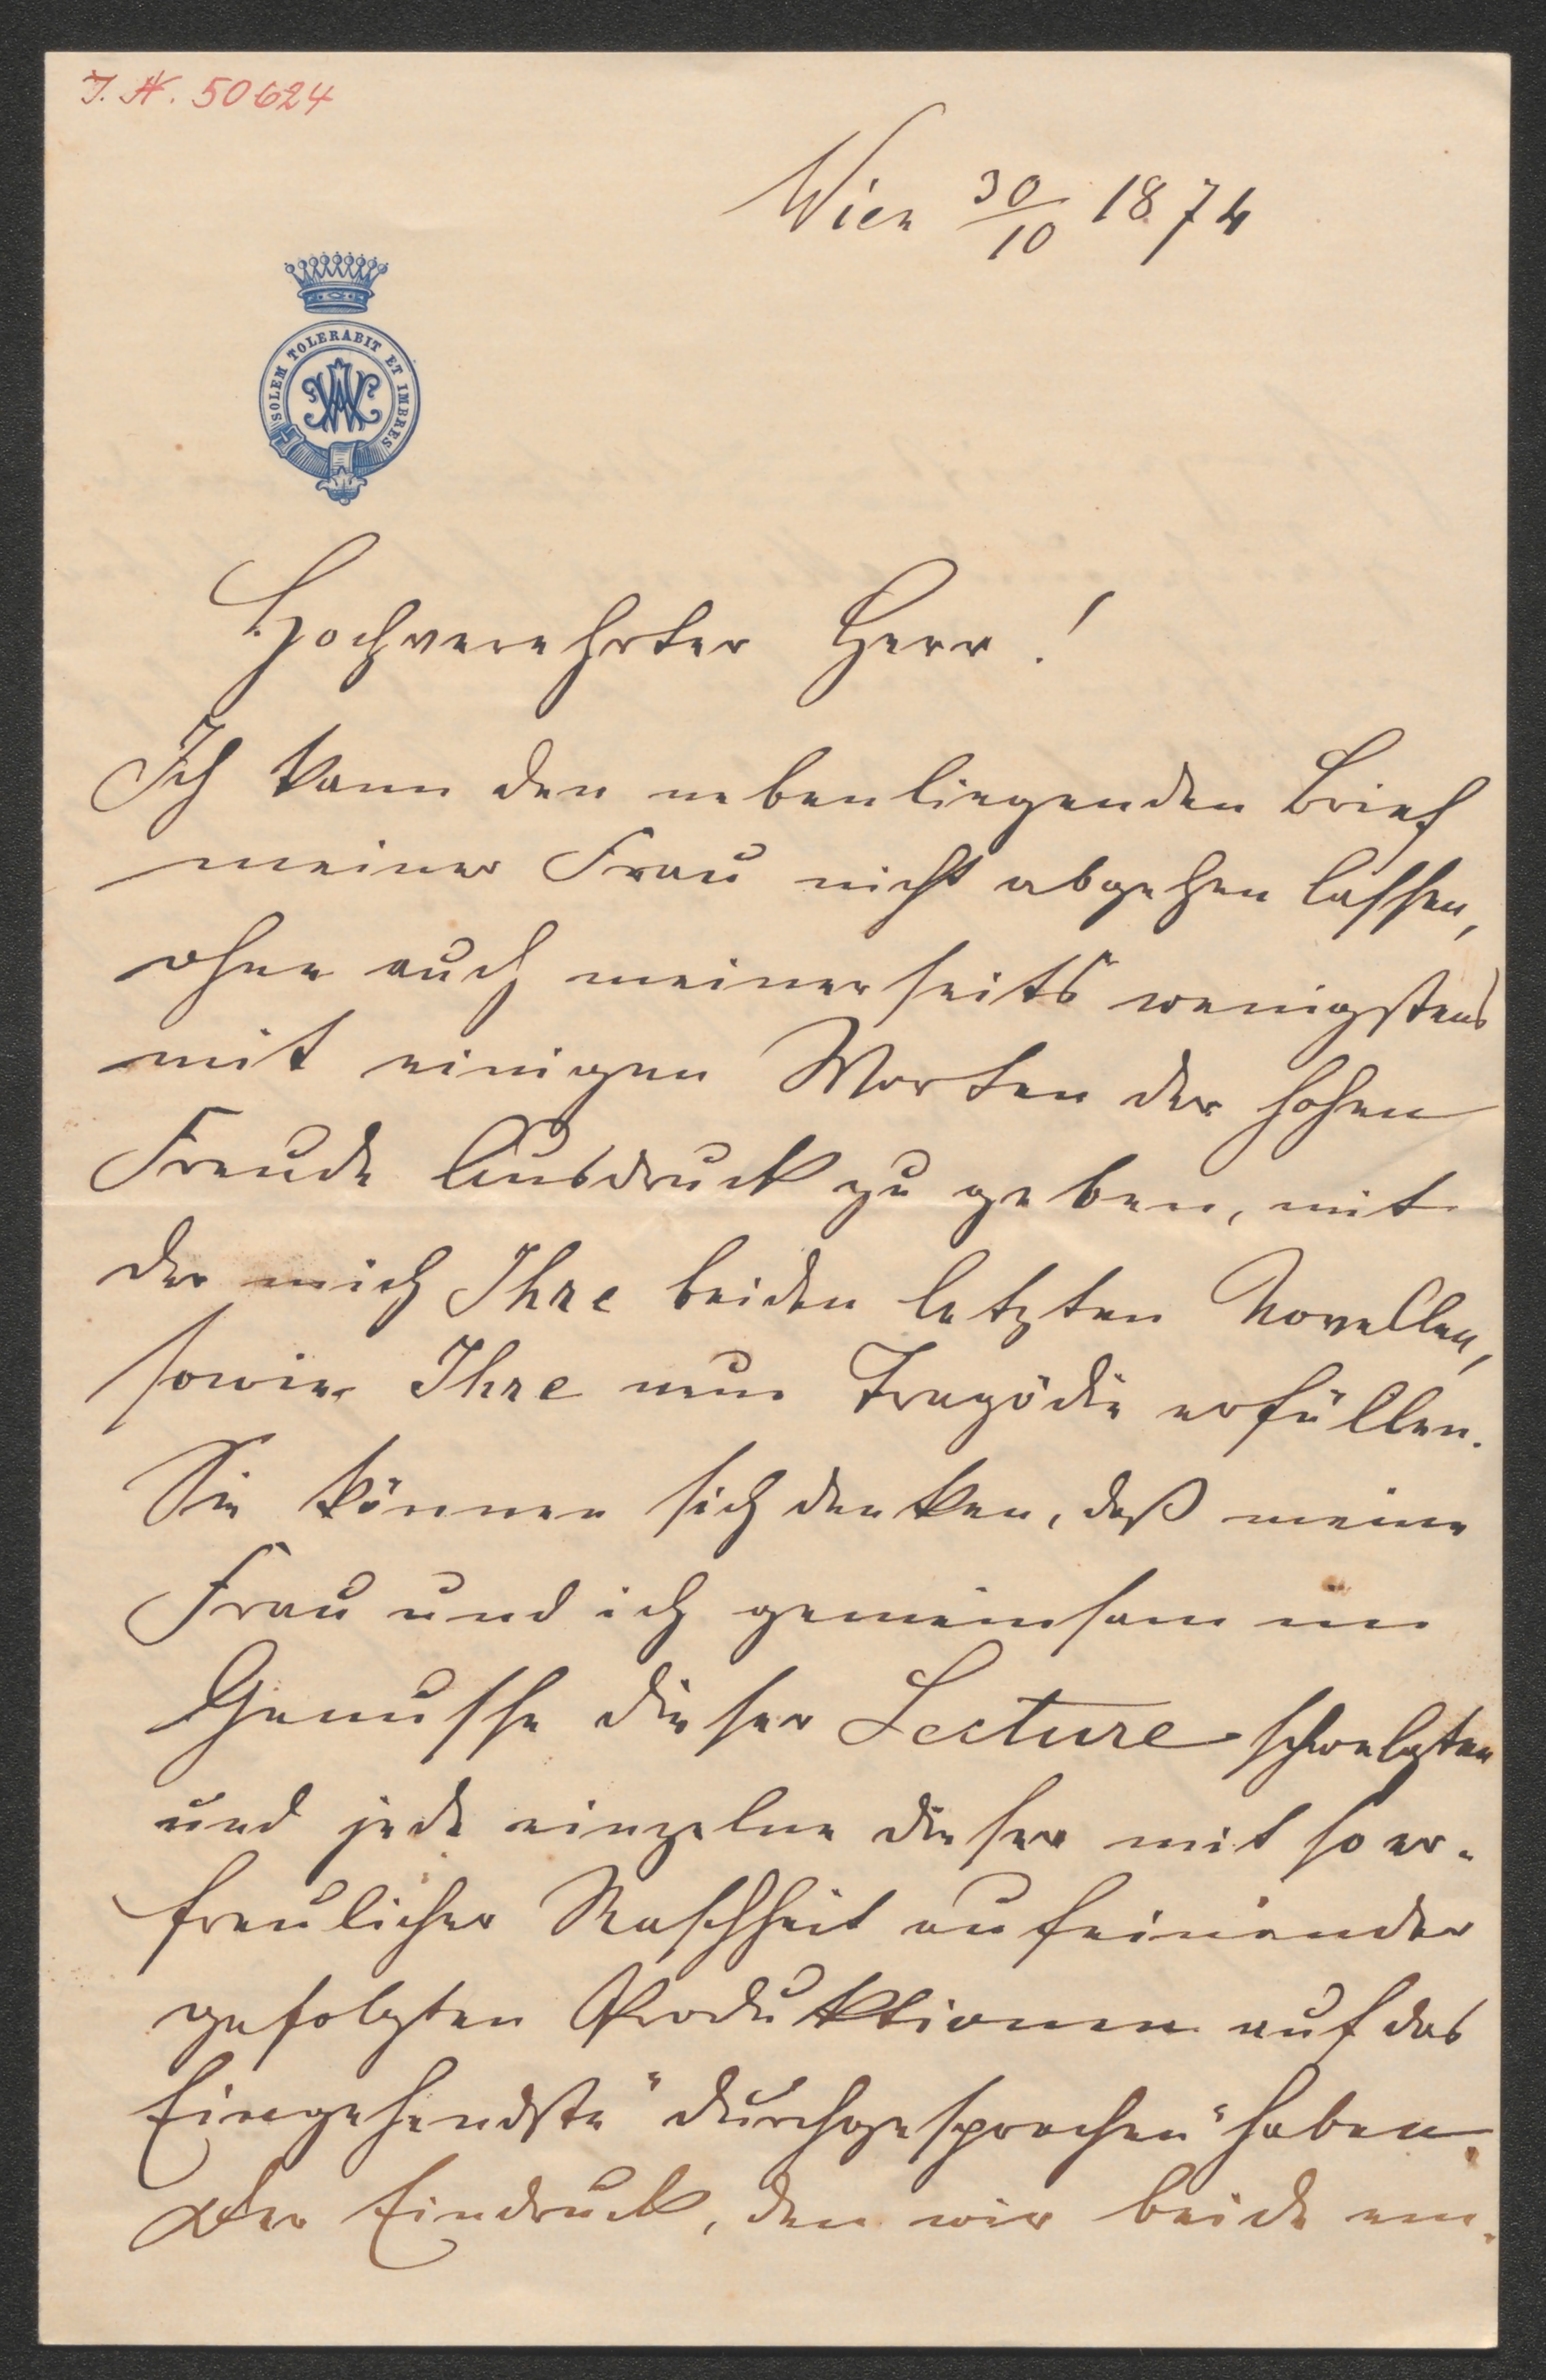 I. N. 50624
Wien 30/10 1874
SOLEM TOLERABIT ET IMBRES
Hochverehrter Herr!
Ich kann den nebenliegenden Brief
meiner Frau nicht abgehen lassen,
ohne auch meinerseits wenigstens
mit einigen Worten der hohen
Freude Ausdruck zu geben, mit
der mich Ihre beiden letzten Novellen,
sowie Ihre neue Tragödie erfüllen.
Sie können sich denken, daß meine
Frau und ich gemeinsam im
Genusse dieser Lecture schwelgten
und jede einzelne dieser mit so er-
freulicher Raschheit aufeinander
gefolgten Produktionen auf das
Eingehendste "durchgesprochen" haben.
Der Eindruck, den wir beide em-